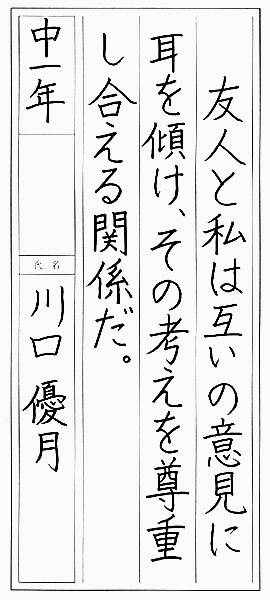 友人と私は互いの意見に
耳を傾け、その考えを尊重
し合える関係だ。
中一年
氏名
川口優月